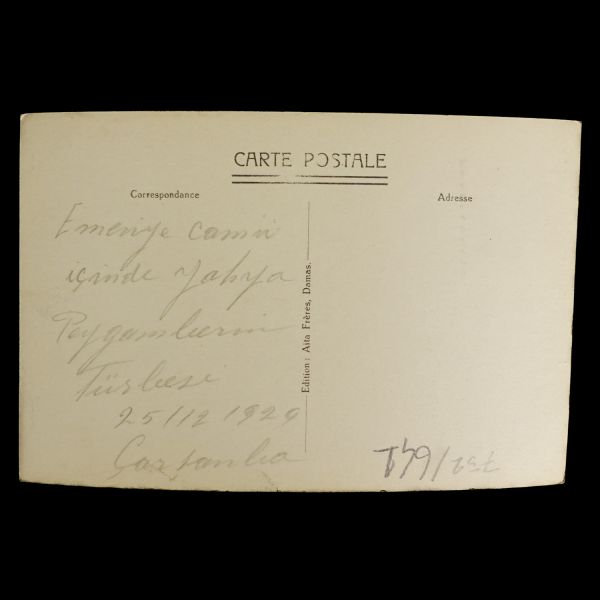 CARTE POSTALE
Correspondance
Adresse
Emeviye camii
içinde Yahya
Peygamberin
Türbesi
25/12 1929
Çarşamba
Edition: Aita Frères, Damas.